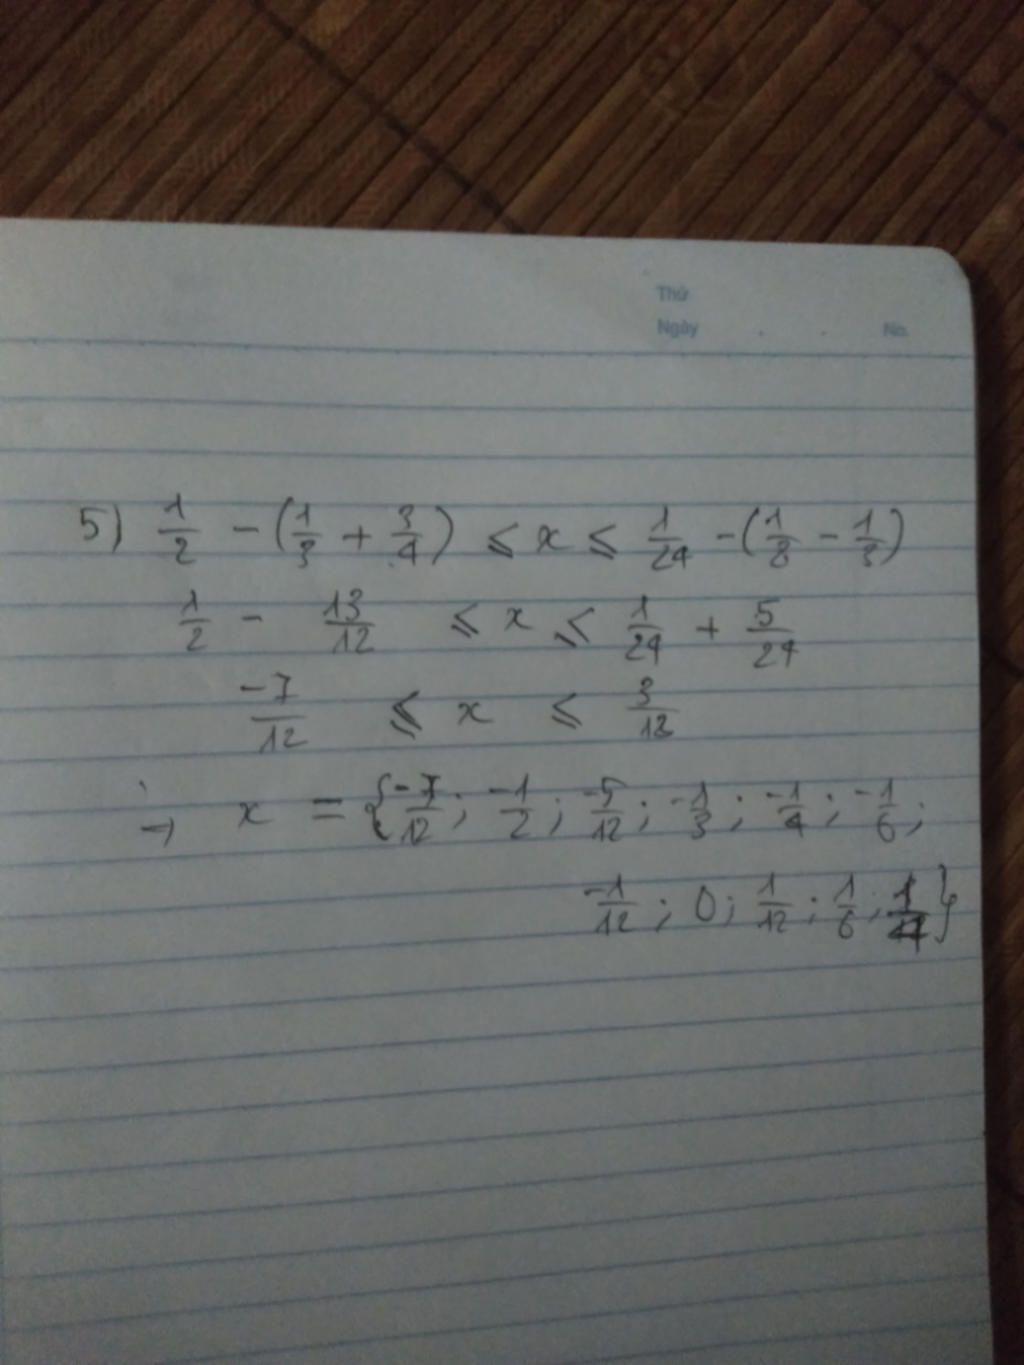 Thứ
Ngày . . No.
5) 1/2 - (1/3 + 3/4) ≤ x ≤ 1/24 - (1/8 - 1/3)
1/2 - 13/12 ≤ x ≤ 1/24 + 5/24
-7/12 ≤ x ≤ 3/12
→ x = {-7/12; -1/2; -5/12; -1/3; -1/4; -1/6;
-1/12; 0; 1/12; 1/6; 1/4}